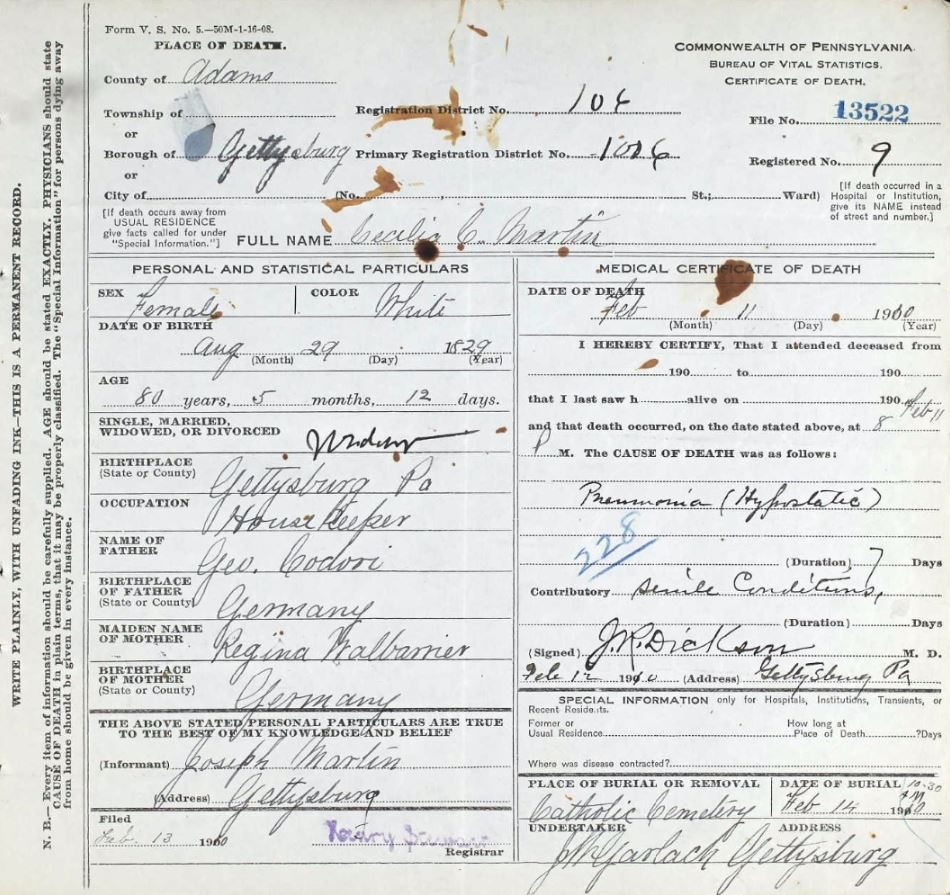 Form V. S. No. 5.—50M-1-16-08.
PLACE OF DEATH.
County of Adams
Township of
or
Borough of Gettysburg
or
City of
(No.
St.;
Ward)
Registration District No. 106
Primary Registration District No. 1006
COMMONWEALTH OF PENNSYLVANIA.
BUREAU OF VITAL STATISTICS.
CERTIFICATE OF DEATH.
File No. 13522
Registered No. 9
[If death occurred in a
Hospital or Institution,
give its NAME instead
of street and number.]
[If death occurs away from
USUAL RESIDENCE
give facts called for under
"Special Information."]
FULL NAME Cecilia C. Martin
PERSONAL AND STATISTICAL PARTICULARS
SEX Female
COLOR White
DATE OF BIRTH
Aug 29 1829
(Month) (Day) (Year)
AGE
80 years, 5 months, 12 days.
SINGLE, MARRIED,
WIDOWED, OR DIVORCED Widow
BIRTHPLACE
(State or County) Gettysburg Pa
OCCUPATION
House Keeper
NAME OF
FATHER Geo. Codori
BIRTHPLACE
OF FATHER
(State or County) Germany
MAIDEN NAME
OF MOTHER Regina Walbarrier
BIRTHPLACE
OF MOTHER
(State or County) Germany
THE ABOVE STATED PERSONAL PARTICULARS ARE TRUE
TO THE BEST OF MY KNOWLEDGE AND BELIEF
(Informant) Joseph Martin
(Address) Gettysburg
Filed
Feb. 13 1900
Registrar
MEDICAL CERTIFICATE OF DEATH
DATE OF DEATH
Feb 11 1910
(Month) (Day) (Year)
I HEREBY CERTIFY, That I attended deceased from
190 to 190
that I last saw h alive on 190 Feb 11
and that death occurred, on the date stated above, at 8
P M. The CAUSE OF DEATH was as follows:
Pneumonia (Hypostatic)
228
(Duration) 7 Days
Contributory senile Conditions,
(Duration) Days
(Signed) J.R. Dickson M. D.
Feb 12 1910 (Address) Gettysburg Pa
SPECIAL INFORMATION only for Hospitals, Institutions, Transients, or
Recent Residents.
Former or
Usual Residence
How long at
Place of Death ?Days
Where was disease contracted?
PLACE OF BURIAL OR REMOVAL
Catholic Cemetery
DATE OF BURIAL 10-30
AM
Feb 14 1910
UNDERTAKER
ADDRESS
J W Garlach Gettysburg
WRITE PLAINLY, WITH UNFADING INK—THIS IS A PERMANENT RECORD.
N. B.—Every item of information should be carefully supplied. AGE should be stated EXACTLY. PHYSICIANS should state
CAUSE OF DEATH in plain terms, that it may be properly classified. The "Special Information" for persons dying away
from home should be given in every instance.